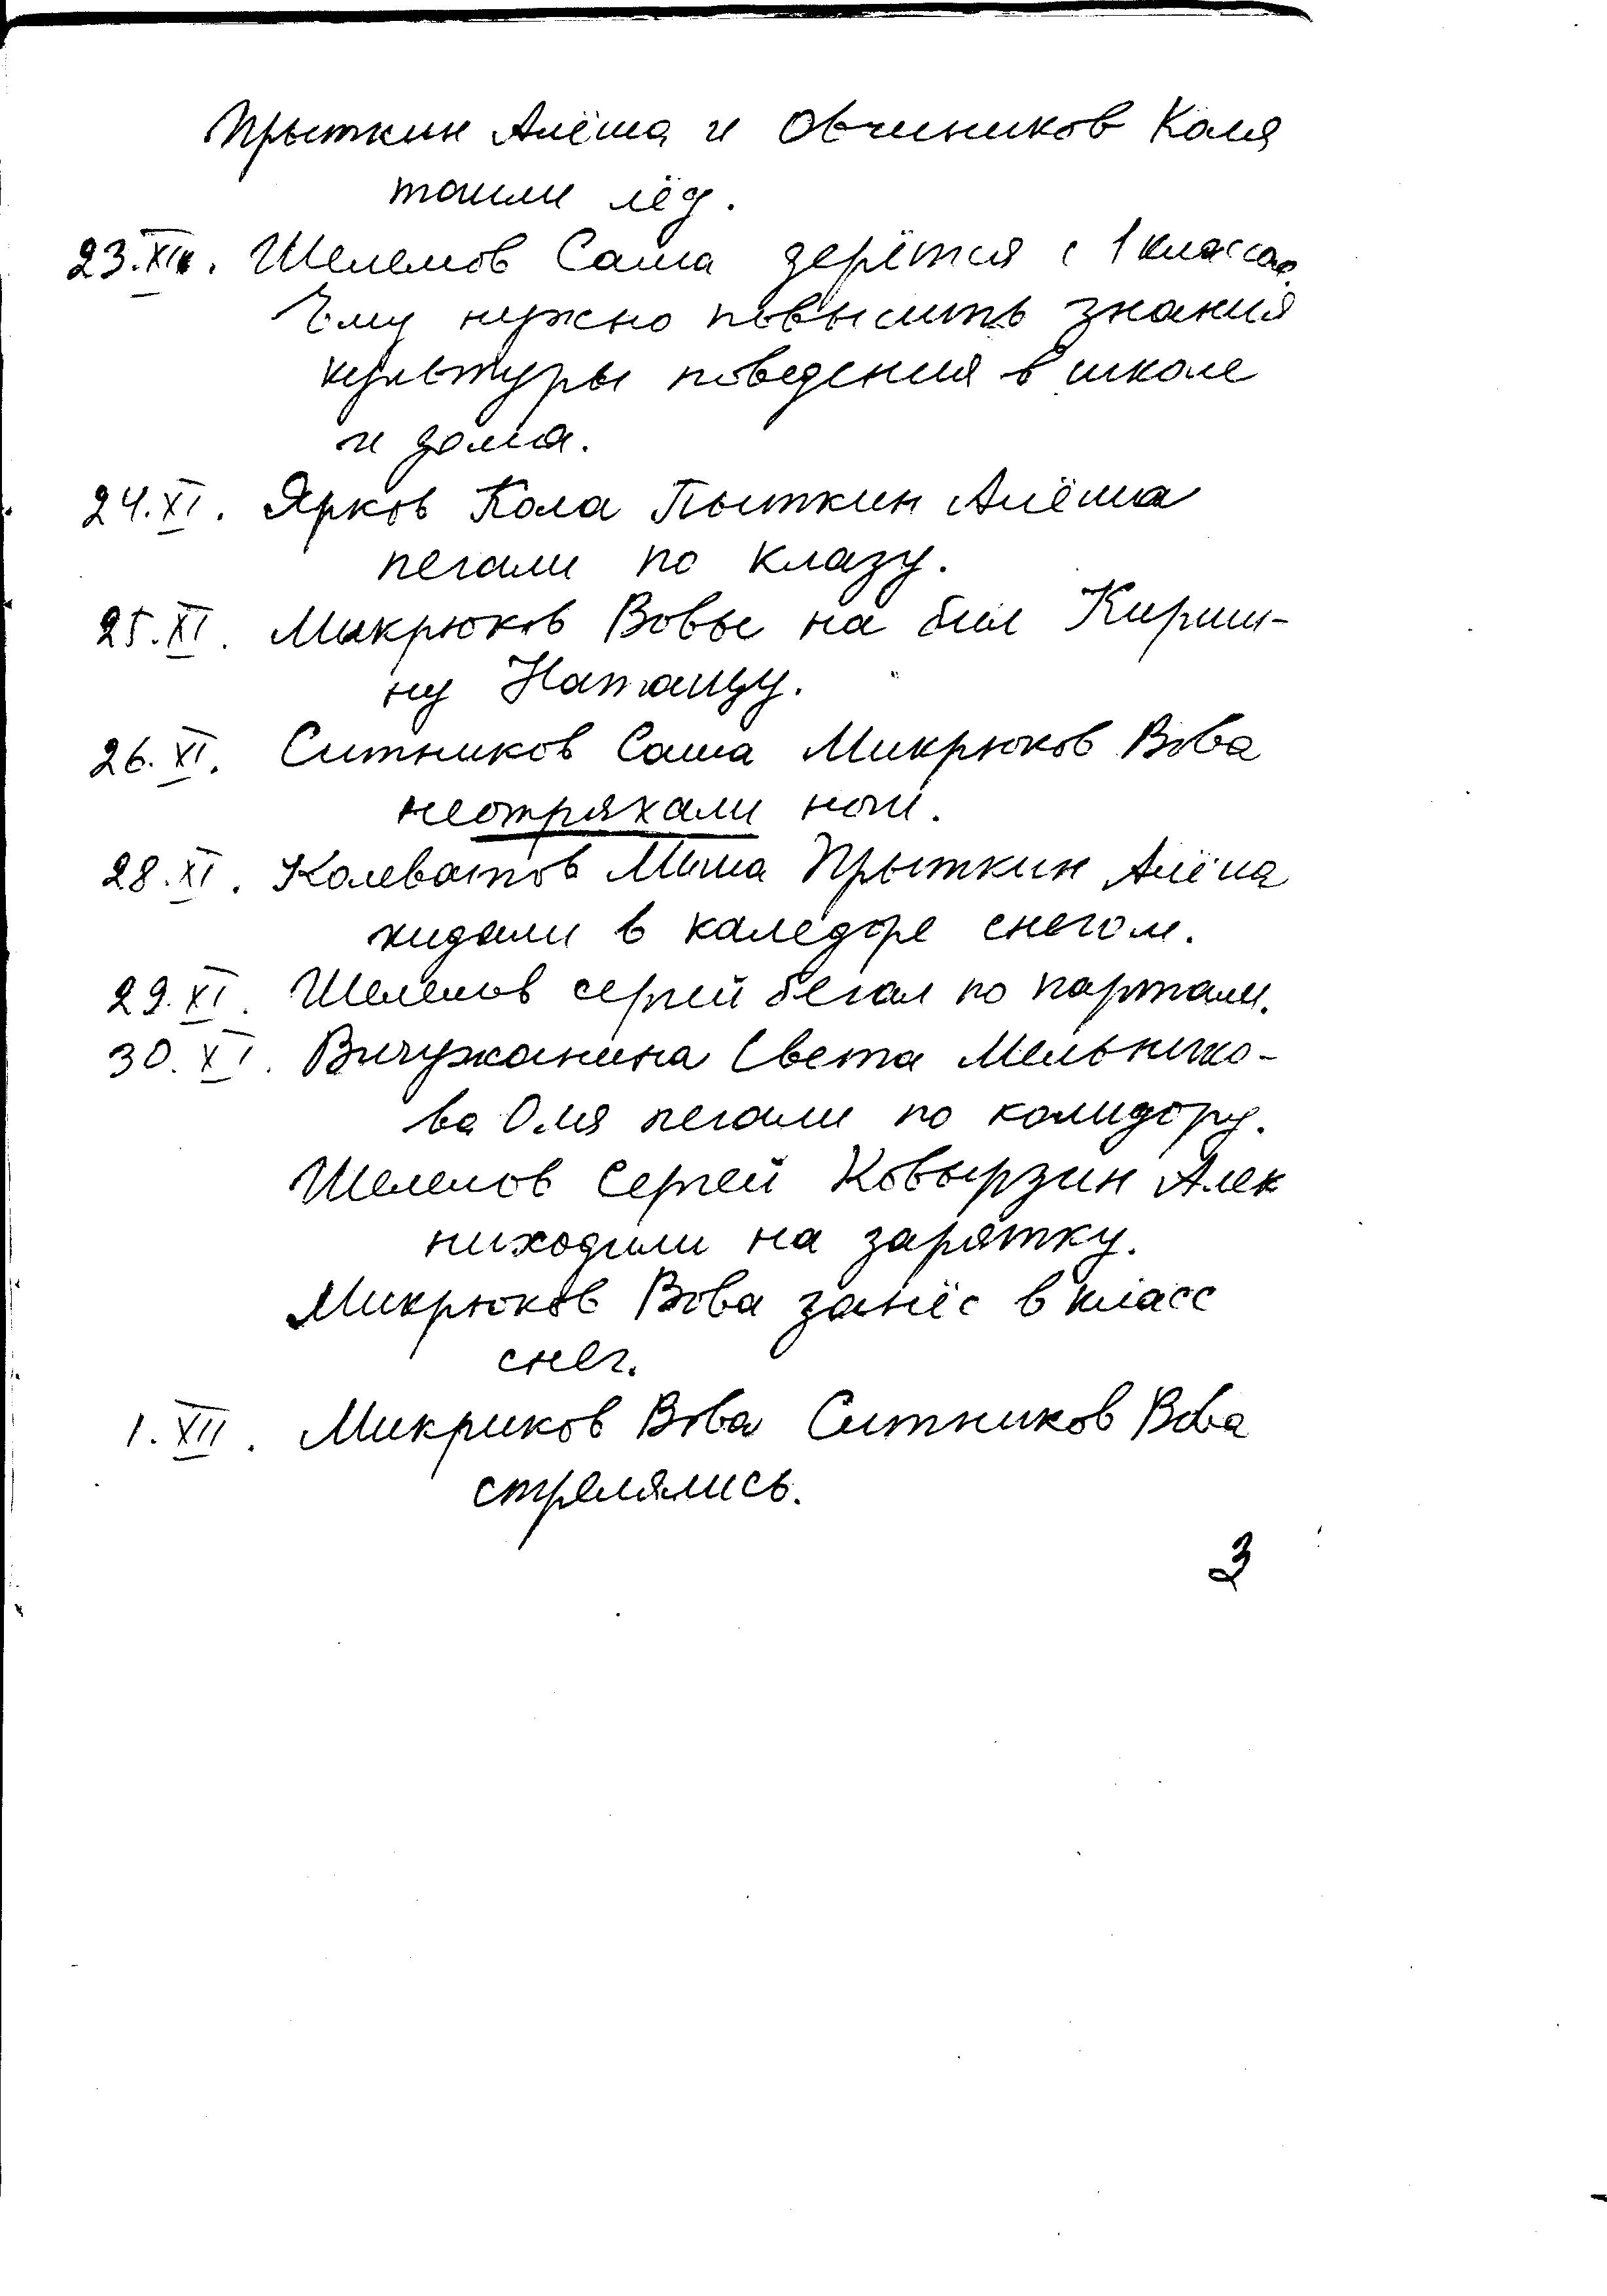 Прыткин Алёша и Овчиников Коля
таили лёд.
23.XI. Шелемов Саша дерётся с 1 класса.
Ему нужно повысить знания
культуры поведения в школе
и дома.
24.XI. Ярков Кола Пыткин Алёша
пегали по клазу.
25.XI. Микрюков Вовы на бил Кирши-
ну Наташу.
26.XI. Ситников Саша Микрюков Вова
неотряхали ноги.
28.XI. Колеватов Миша Прыткин Алёша
кидали в каледоре снегом.
29.XI. Шелемов сергей бегал по партам.
30.XI. Вичужанина Света Мельнико-
ва Оля пегали по колидору.
Шелемов Сергей Ковырзин Алек
ниходили на зарятку.
Микрюков Вова занёс в класс
снег.
1.XII. Микриков Вова Ситников Вова
стрелялись.
3